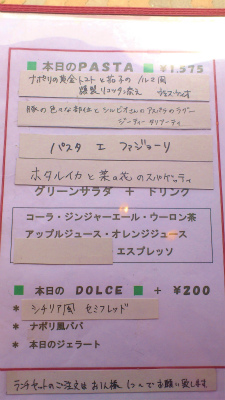 ■ 本日のPASTA ■ ¥1,575
ナポリの黄金トマトと茄子の ノルマ風
燻製リコッタ添え
豚の色々な部位と
のラグー
パスタ エ ファジョーリ
ホタルイカと菜の花のスパゲッティ
グリーンサラダ + ドリンク
コーラ・ジンジャーエール・ウーロン茶
アップルジュース・オレンジジュース
エスプレッソ
■ 本日の DOLCE ■ + ¥200
* シチリア風 セミフレッド
* ナポリ風ババ
* 本日のジェラート
ランチセットのご注文はお1人様 1つでお願い致します